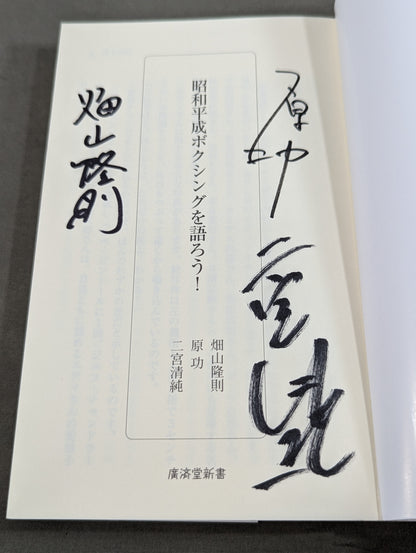 原功
二宮清純
昭和平成ボクシングを語ろう!
畑山隆則
原 功
二宮清純
廣済堂新書
畑山隆則